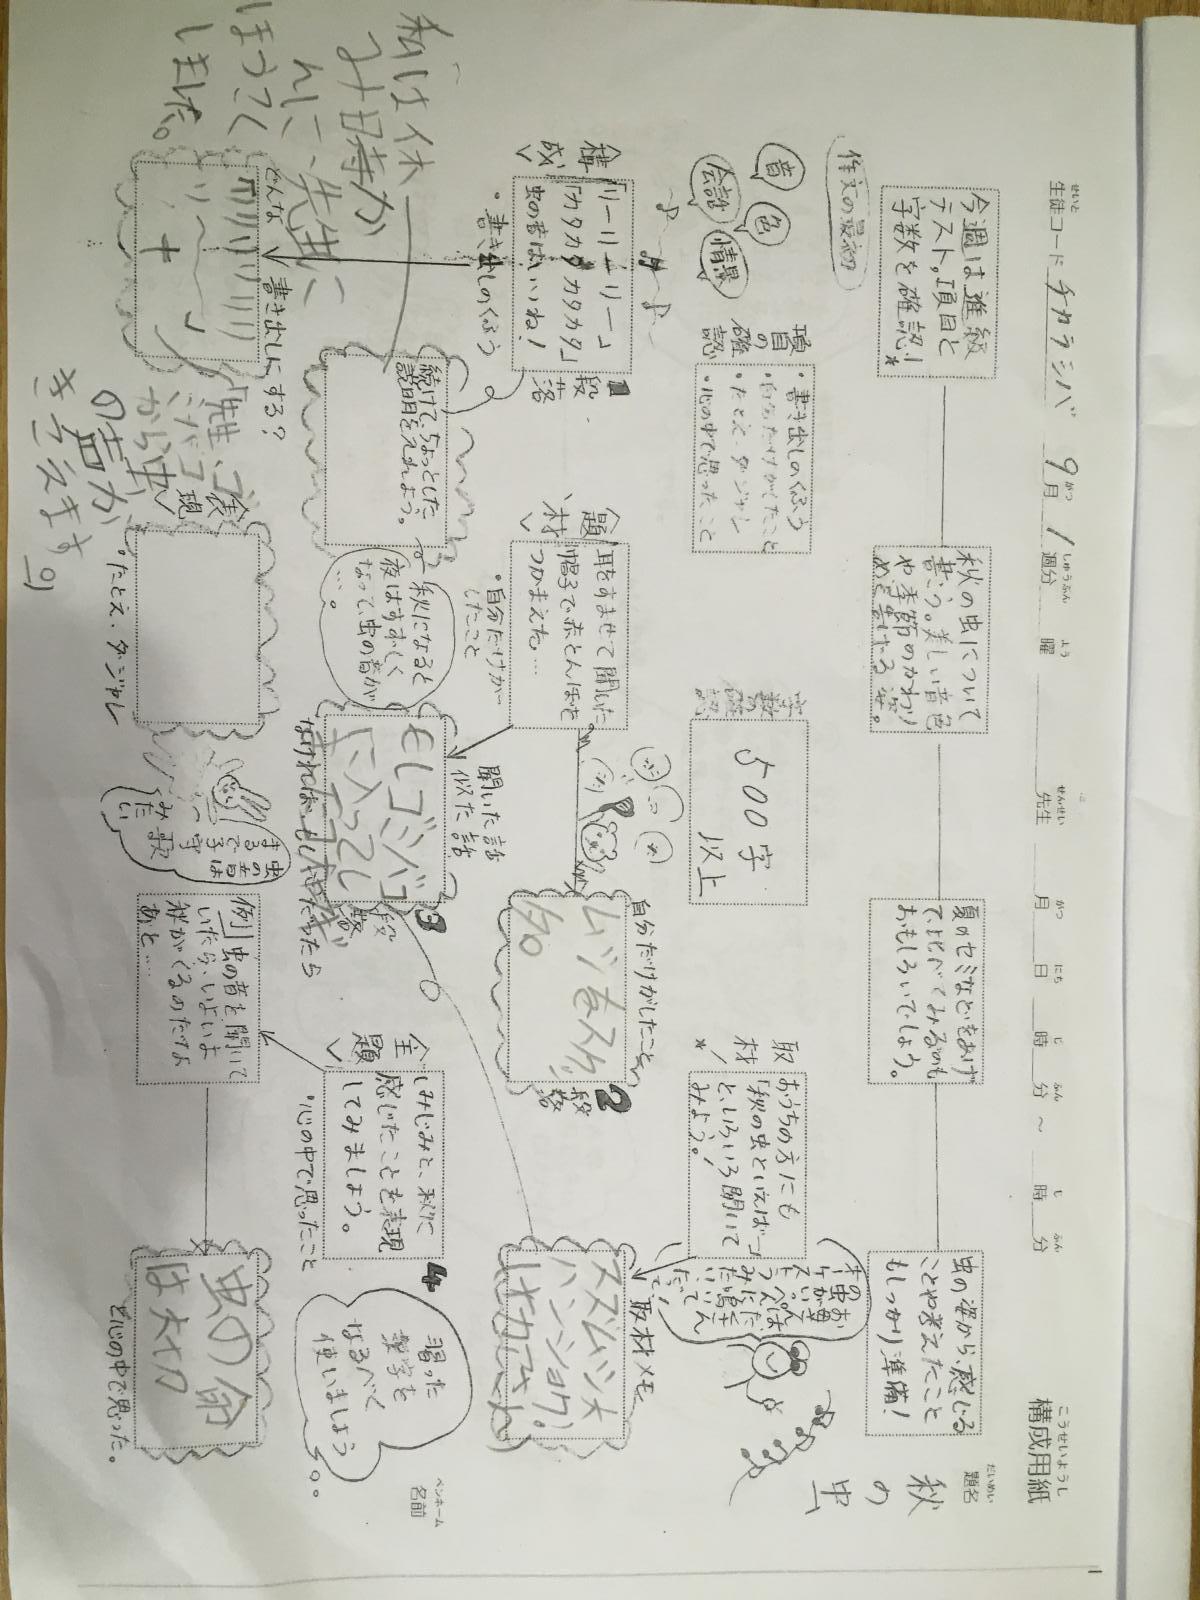 構成用紙
こうせいようし
生徒コード チカラシバ 9月 1週分 曜 先生 月 日 時 分 〜 時 分
題名
だいめい
秋の虫
名前
ペンネーム
今週は進級
テスト。項目と
字数を確認!
秋の虫について
書こう。美しい音色
や季節のかわり
めを書けたる
夏のセミなどをあげ
て、比べてみるのも
おもしろいでしょう。
虫の姿から、感じる
ことや考えたこと
もしっかり準備!
作文の最初
音
色
会話
情景
項目の確認
・書き出しのくふう
・自分だけがしたこと
・たとえ・ダジャレ
・心の中で思ったこと
字数の確認
500字
以上
取材
おうちの方にも
「秋の虫といえば…」
といろいろ聞いて
みよう!
取材メモ
スズムシ大
構成
「リーリーリー」
「カタカタカタカタ」
虫の音はいいね!
・書き出しのくふう
1段落
題材
耳をすませて聞いた
帽子で赤とんぼを
つかまえた…
・自分だけが
したこと
自分だけがしたこと
2段落
続けて、ちょっとした
説明をいれよう。
秋になると
夜はすずしく
なって、虫の音が
…。
聞いた話
似た話
もしゴミバコ
に入ってし
なければ、もし〜だったら
3段落
主題
しみじみと、秋に
感じたことを表現
してみましょう。
・心の中で思ったこと
4
習った
漢字を
なるべく
使いましょう
どんな書き出しにする?
私は休
み時か
んに、先生に
ほうこく
しました。
「先生、ゴ
ミバコ
から虫
の音が
きこえます
。」
表現
・たとえ・ダジャレ
虫の音は
まるで子守
歌
みたい
例 虫の音を聞いて
いたら、いよいよ
秋がくるのだなぁ
と…。
虫の命
は大切
と心の中で思った。